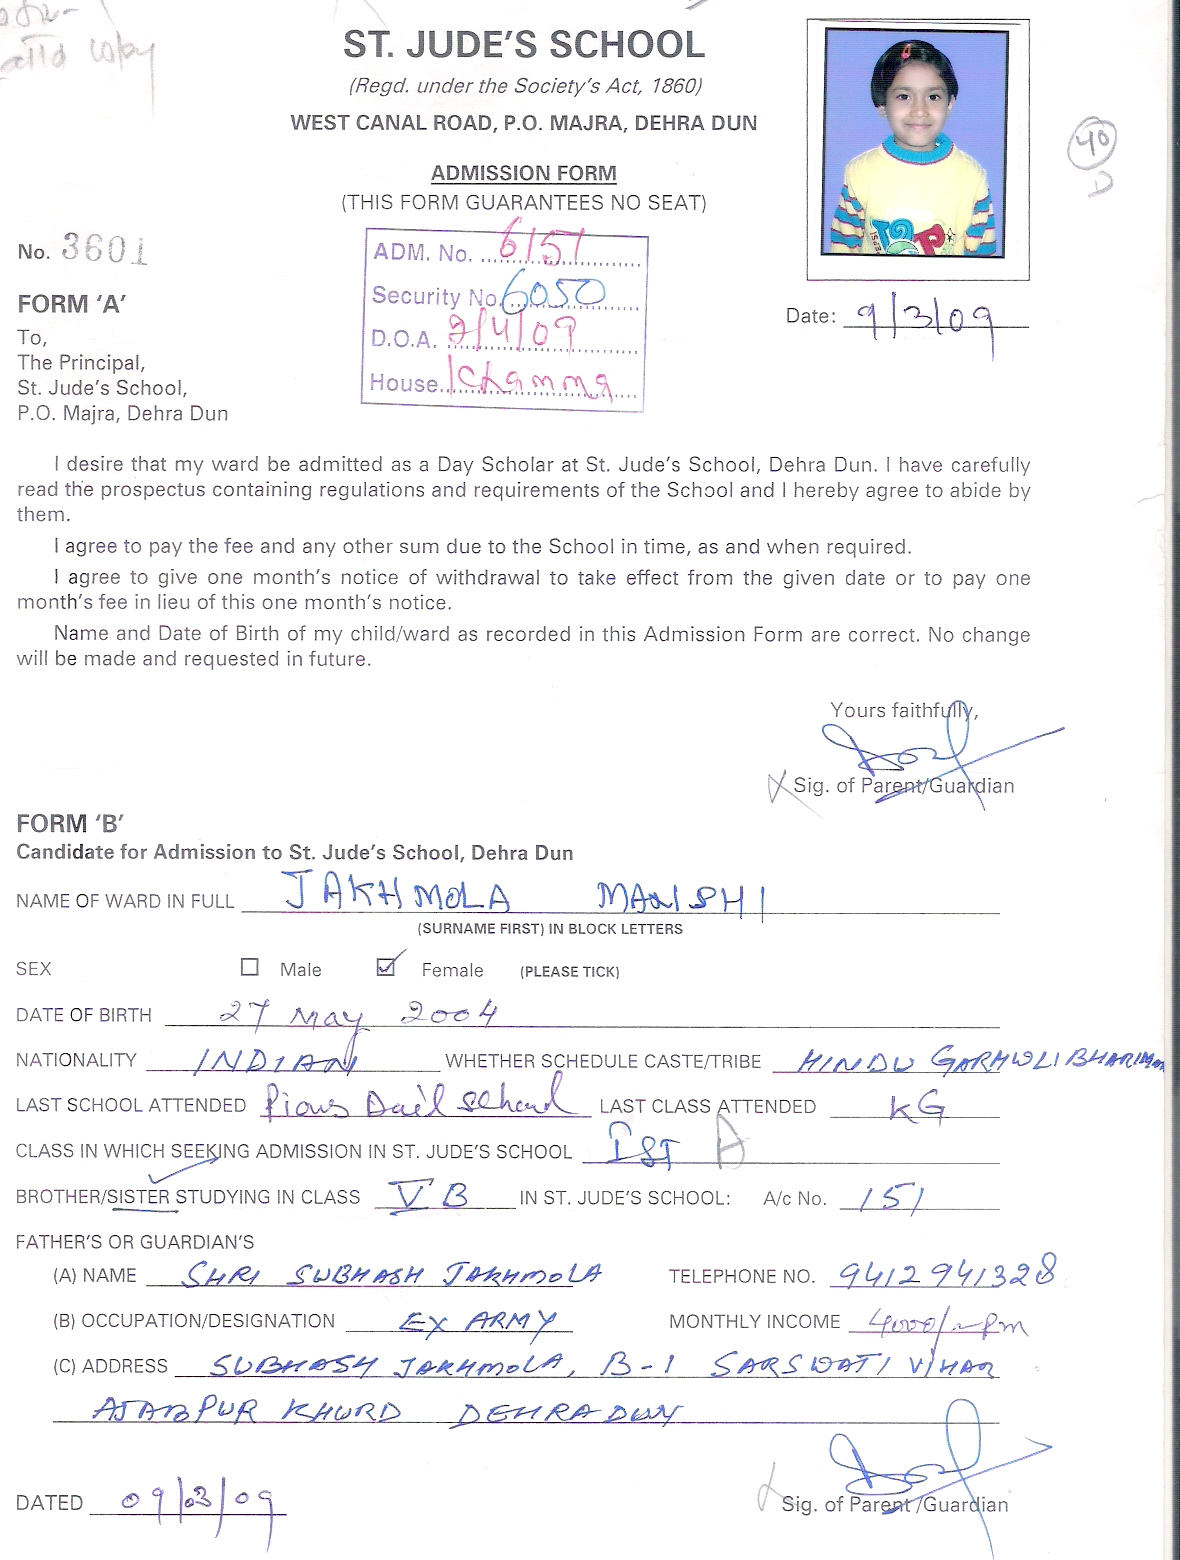 copy
ST. JUDE'S SCHOOL
(Regd. under the Society's Act, 1860)
WEST CANAL ROAD, P.O. MAJRA, DEHRA DUN
40
D
ADMISSION FORM
(THIS FORM GUARANTEES NO SEAT)
No. 3601
ADM. No. 6151
Security No. 6050
D.O.A. 2/4/09
House
Date: 9/3/09
FORM 'A'
To,
The Principal,
St. Jude's School,
P.O. Majra, Dehra Dun
I desire that my ward be admitted as a Day Scholar at St. Jude's School, Dehra Dun. I have carefully
read the prospectus containing regulations and requirements of the School and I hereby agree to abide by
them.
I agree to pay the fee and any other sum due to the School in time, as and when required.
I agree to give one month's notice of withdrawal to take effect from the given date or to pay one
month's fee in lieu of this one month's notice.
Name and Date of Birth of my child/ward as recorded in this Admission Form are correct. No change
will be made and requested in future.
Yours faithfully,
Sig. of Parent/Guardian
FORM 'B'
Candidate for Admission to St. Jude's School, Dehra Dun
NAME OF WARD IN FULL JAKHMOLA MANISHI
(SURNAME FIRST) IN BLOCK LETTERS
SEX Male Female (PLEASE TICK)
DATE OF BIRTH 27 May 2004
NATIONALITY INDIAN WHETHER SCHEDULE CASTE/TRIBE HINDU
LAST SCHOOL ATTENDED School LAST CLASS ATTENDED KG
CLASS IN WHICH SEEKING ADMISSION IN ST. JUDE'S SCHOOL IST A
BROTHER/SISTER STUDYING IN CLASS V B IN ST. JUDE'S SCHOOL: A/c No. 151
FATHER'S OR GUARDIAN'S
(A) NAME SHRI SUBHASH JAKHMOLA TELEPHONE NO. 9412941328
(B) OCCUPATION/DESIGNATION EX ARMY MONTHLY INCOME 4000/- Pm
(C) ADDRESS SUBHASH JAKHMOLA, B-1 SARSWATI VIHAR
AJABPUR KHURD DEHRADUN
DATED 09/03/09
Sig. of Parent/Guardian